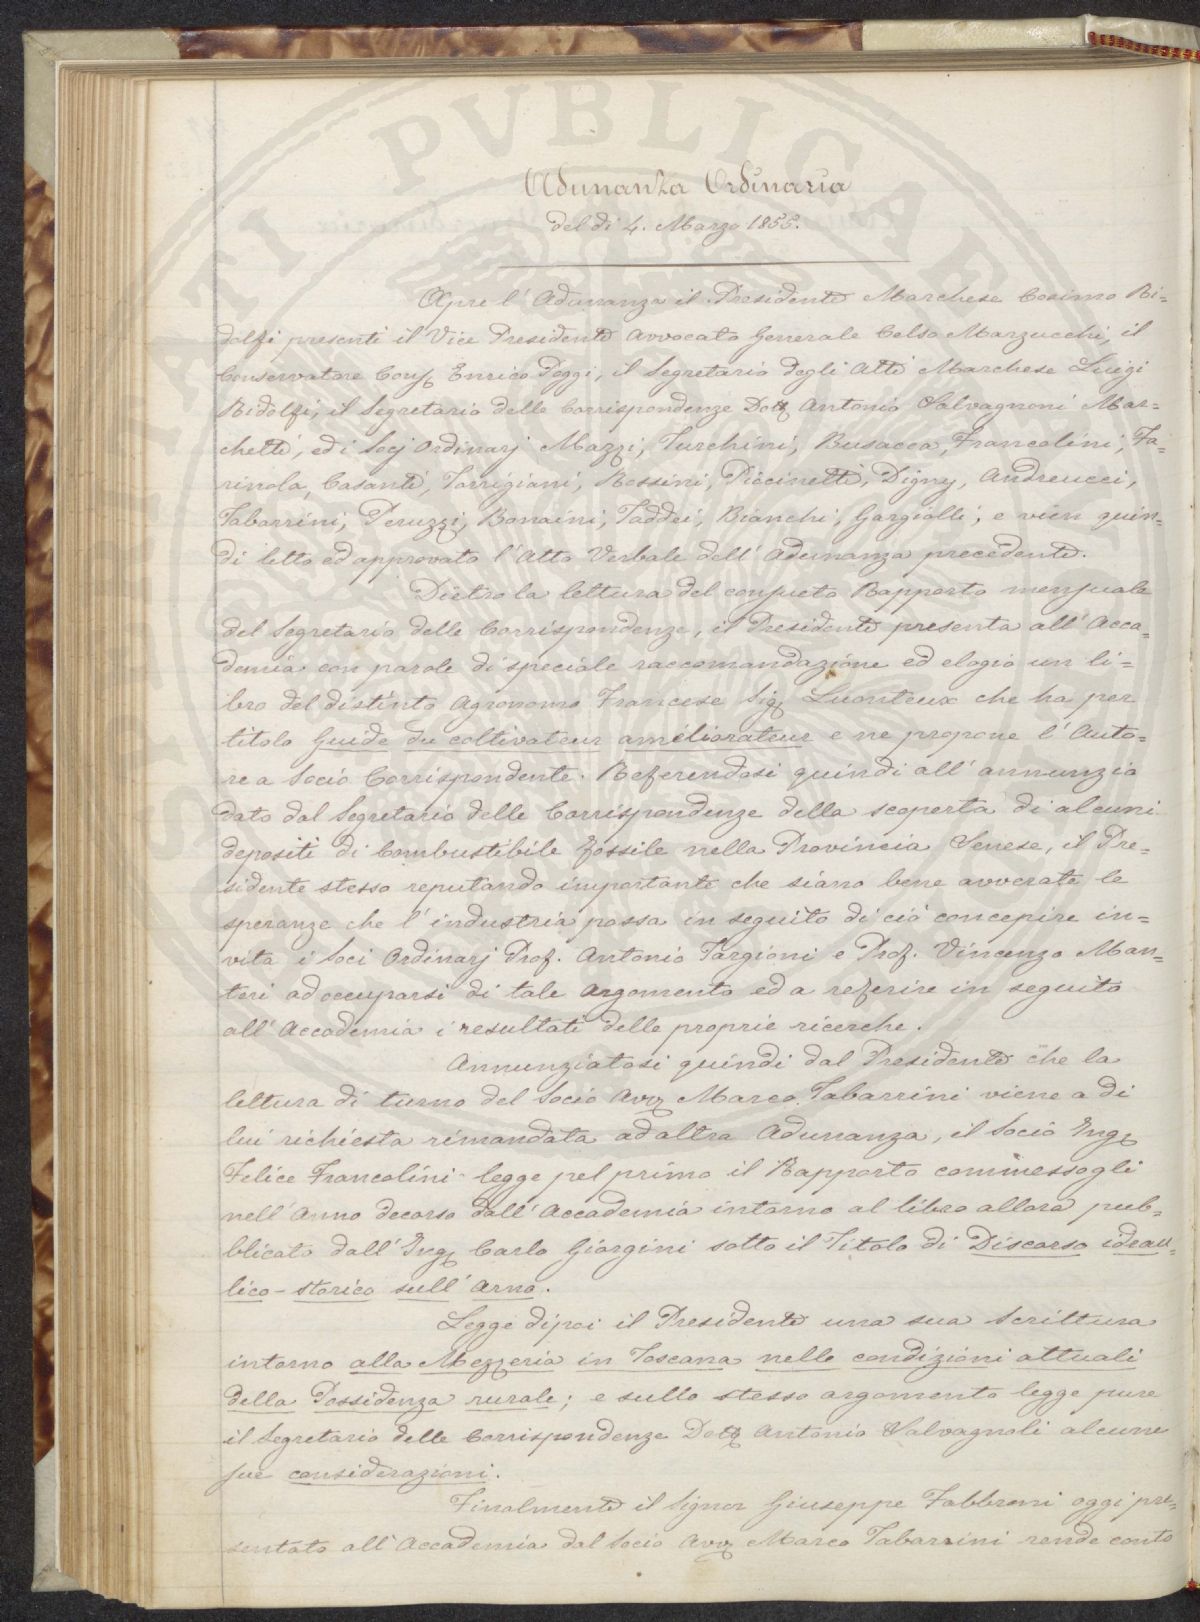 Adunanza Ordinaria
del dì 4. Marzo 1855.
Apre l'Adunanza il Presidente Marchese Cosimo Ri=
dolfi presenti il Vice Presidente Avvocato Generale Celso Marzucchi, il
Conservatore Cons. Enrico Poggi, il Segretario degli Atti Marchese Luigi
Ridolfi, il Segretario delle Corrispondenze Dott. Antonio Salvagnoni Mar=
chetti, ed i Socj Ordinarj Mazzi, Turchini, Busacca, Francolini, Fa=
rinola, Casanti, Torrigiani, Rossini, Piccinetti, Digny, Andreucci,
Tabarrini, Peruzzi, Bonaini, Taddei, Bianchi, Gargiolli, e vien quin=
di letto ed approvato l'Atto Verbale dell'Adunanza precedente.
Dietro la lettura del consueto Rapporto mensuale
del Segretario delle Corrispondenze, il Presidente presenta all'Acca=
demia con parole di speciale raccomandazione ed elogio un li=
bro del distinto Agronomo Francese Sig. che ha per
titolo Guide du coltivateur améliorateur e ne propone l'Auto=
re a Socio Corrispondente. Referendosi quindi all'annunzio
dato dal Segretario delle Corrispondenze della scoperta di alcuni
depositi di Combustibile fossile nella Provincia Senese, il Pre=
sidente stesso reputando importante che siano bene avverate le
speranze che l'industria possa in seguito di ciò concepire in=
vita i Soci Ordinarj Prof. Antonio Targioni e Prof. Vincenzo Man=
teri ad occuparsi di tale argomento ed a referire in seguito
all'Accademia i resultati delle proprie ricerche.
Annunziatosi quindi dal Presidente che la
lettura di turno del Socio Avv. Marco Tabarrini viene a di
lui richiesta rimandata ad altra Adunanza, il Socio Ing.
Felice Francolini legge pel primo il Rapporto commessogli
nell'Anno decorso dall'Accademia intorno al libro allora pub=
blicato dall'Ing. Carlo Giorgini sotto il Titolo di Discorso idrau=
lico - storico sull'Arno.
Legge dipoi il Presidente una sua Scrittura
intorno alla Mezzeria in Toscana nelle condizioni attuali
della Possidenza rurale; e sullo stesso argomento legge pure
il Segretario delle Corrispondenze Dott. Antonio Salvagnoli alcune
sue considerazioni.
Finalmente il Signor Giuseppe Fabbroni oggi pre=
sentato all'Accademia dal Socio Avv. Marco Tabarrini rende conto